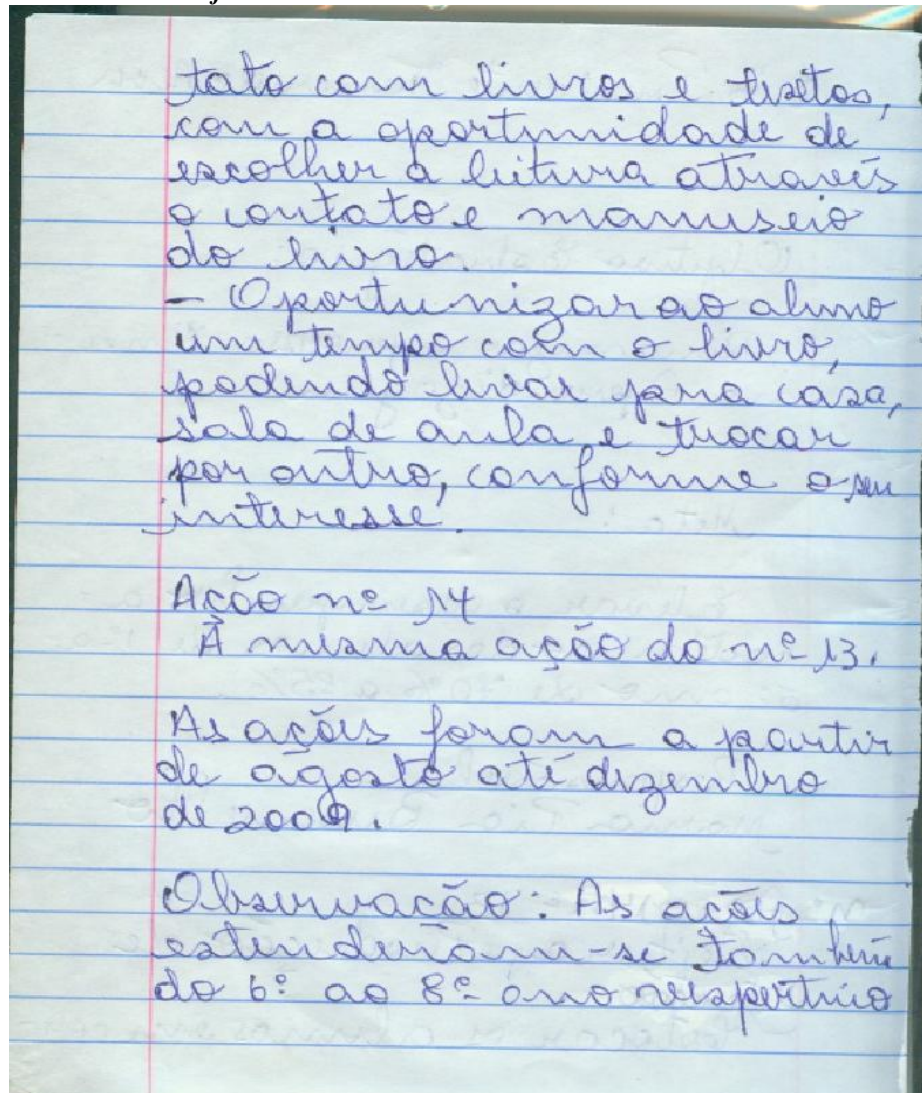 tato com livros e textos,
com a oportunidade de
escolher a leitura através
o contato e manuseio
do livro.
- Oportunizar ao aluno
um tempo com o livro,
podendo levar para casa,
sala de aula e trocar
por outro, conforme o seu
interesse.
Ação nº 14
A mesma ação do nº 13.
As ações foram a partir
de agosto até dezembro
de 2009.
Observação: As ações
estenderam-se também
do 6º ao 8º ano vespertino